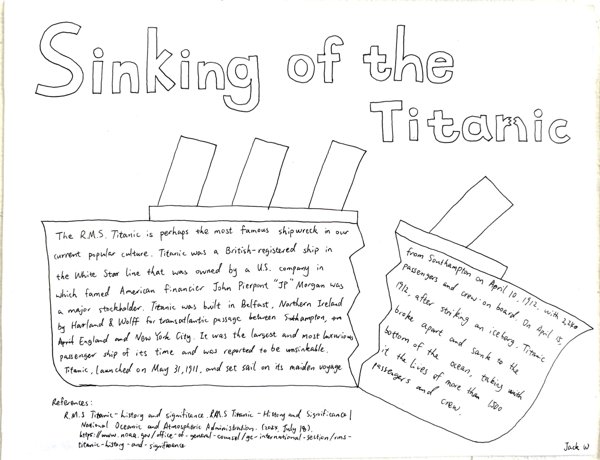 Sinking of the
Titanic
The R.M.S. Titanic is perhaps the most famous shipwreck in our
current popular culture. Titanic was a British-registered ship in
the White Star line that was owned by a U.S. company in
which famed American financier John Pierpont "JP" Morgan was
a major stockholder. Titanic was built in Belfast, Northern Ireland
by Harland & Wolff for transatlantic passage between Southampton,
England and New York City. It was the largest and most luxurious
passenger ship of its time and was reported to be unsinkable.
Titanic, launched on May 31, 1911, and set sail on its maiden voyage
from Southampton on April 10, 1912, with 2,240
passengers and crew on board. On April 15,
1912, after striking an iceberg, Titanic
broke apart and sank to the
bottom of the ocean, taking with
it the lives of more than 1,500
passengers and crew.
References:
R.M.S Titanic - history and significance. RMS Titanic - History and Significance |
National Oceanic and Atmospheric Administration. (July 18).
https://www.noaa.gov/office-of-general-counsel/gc-international-section/rms-
titanic-history-and-significance
Jack W